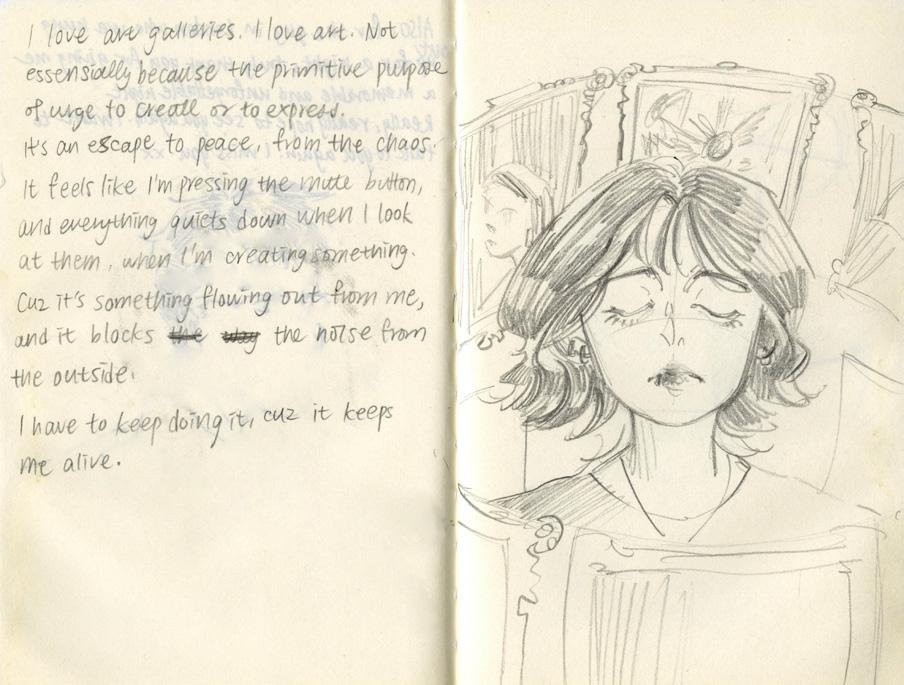 I love art galleries. I love art. Not
essensially because the primitive purpose
of urge to create or to express.
It's an escape to peace, from the chaos.
It feels like I'm pressing the mute button,
and everything quiets down when I look
at them, when I'm creating something.
Cuz it's something flowing out from me,
and it blocks the way the noise from
the outside.
I have to keep doing it, cuz it keeps
me alive.